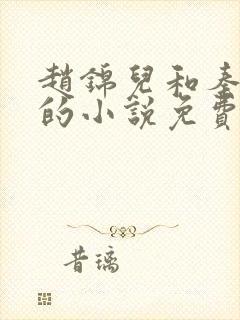 趙錦兒和秦
的小說免費
昔璃